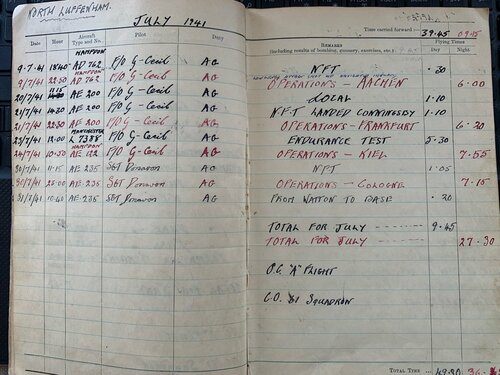 NORTH LUFFENHAM.
JULY 1941
Date Hour Aircraft Type and No. Pilot Duty
HAMPDEN
9-7-41 1840 AD 762 P/O G-Cecil AG
HAMPDEN
9/7/41 22.50 AD 762 P/O G-Cecil AG
20/7/41 11.15 AE 200 P/O G-Cecil AG
21/7/41 14.30 AE 200 P/O G-Cecil AG
21/7/41 22.30 AE 200 P/O G-Cecil AG
MANCHESTER
23/7/41 12.00 L 7388 P/O G-Cecil AG
HAMPDEN
24/7/41 10.30 AE 122 P/O G-Cecil AG
30/7/41 11.15 AE 235 SGT Donovon AG
30/7/41 AE-235 SGT Donovon AG
31/7/41 10.40 AE-235 SGT Donovon AG
Time carried forward:— 39.45 09.15
REMARKS
(including results of bombing, gunnery, exercises, etc.)
Flying Times
Day Night
NFT .30
OPERATIONS - AACHEN 6.00
LOCAL 1.10
N.F.T LANDED CONNINGSBY 1.10
OPERATIONS - FRANKFURT 6.20
ENDURANCE TEST 5.30
OPERATIONS - KIEL 7.55
NFT 1.05
OPERATIONS - COLOGNE 7.15
FROM WATTON TO BASE .20
TOTAL FOR JULY 9.45
TOTAL FOR JULY 27.30
O.C. "A" FLIGHT
C.O. 61 SQUADRON
TOTAL TIME 49.30